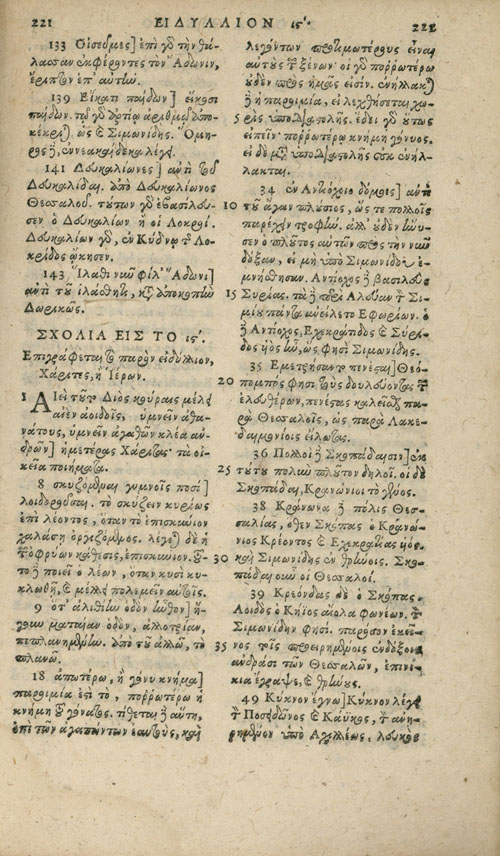 221 ΕΙΔΥΛΛΙΟΝ ιϛʹ. 222
133 Οἰσεῦμες] ἐπὶ γὸ τὴν θά-
λασσαν ἐκφέροντες τὸν Ἄδωνιν,
ἔριπτον ἐπ' αὐτίω.
139 Εἴκατι παίδων] εἴκοσι
παίδων. τῷ γὸ ἀρτίῳ ἀριθμῷ ἀπο-
κέχρη) ὡς καὶ Σιμωνίδης. Ὅμη-
ρος ἢ, ἐννεακαίδεκα λέγει.
141 Δευκαλίωνες] ἀντὶ τοῦ
Δευκαλίδαι. ἀπὸ Δευκαλίωνος
Θεσσαλοῦ. τούτων γὸ ἐβασίλευ-
σεν ὁ Δευκαλίων ἢ οἱ Λοκροί.
Δευκαλίων γὸ, ἐν Κύδνῳ τ Λο-
κρίδος ᾤκησεν.
143 Ἵλαθι νῦν φίλ' Ἄδωνι]
ἀντὶ τοῦ ἱλάσθητι, κατὰ ἀποκοπίω
Δωρικῶς.
ΣΧΟΛΙΑ ΕΙΣ ΤΟ ιϛʹ.
Ἐπιγράφεται τὸ παρὸν εἰδύλλιον,
Χάριτες, ἢ Ἱέρων.
1 Αἰεὶ τοῦτο Διὸς κούραις μέλει
αἰὲν ἀοιδοῖς, ὑμνεῖν ἀθα-
νάτους, ὑμνεῖν ἀγαθῶν κλέα ἀν-
δρῶν] ἡμετέρας Χάριτας· τὰ οἰ-
κεῖα ποιήματα.
8 σκυζόμεναι γυμνοῖς ποσὶ]
λοιδορούσαι. τὸ σκύζειν κυρίως
ἐπὶ λέοντος, ὅταν τὸ ἐπισκύνιον
χαλάσῃ ὀργιζόμενος. λέγε) δὲ ἡ
τ ὀφρύων κάθεσις, ἐπισκύνιον. τοῦ-
το ἢ ποιεῖ ὁ λέων, ὅταν κυσὶ κυ-
κλωθῇ, καὶ μέλλει πολεμεῖν αὐτοῖς.
9 ὅτ' ἀλιθίω ὁδὸν ἦνθον] ἤ-
γουν ματαίαν ὁδὸν, ἀλλοτρίαν,
πεπλανημένίω. ἀπὸ τοῦ ἀλῶ, τὸ
πλανῶ.
18 ἀπωτέρω, ἢ γόνυ κνήμα]
παροιμία ἐστὶ τὸ, πορρωτέρω ἡ
κνήμη τοῦ γόνατος. τίθεται ἢ αὕτη,
ἐπὶ τῶν ἀγαπώντων ἑαυτοὺς, καὶ
λεγόντων προτιμωτέρους εἶναι
αὐτοὺς τ ξένων· οἱ γὸ πορρωτέρω
οὐδὲν πρὸς ἡμᾶς εἰσιν. ἐνήλλακ)
ἢ ἡ παροιμία, εἰ λεχθήσεται χω-
5 ρὶς ὑποδιαστολῆς. ἔδει γὸ οὕτως
εἰπεῖν· πορρωτέρω κνήμη γόνυος.
εἰ δὲ μεθ' ὑποδιαστολῆς οὐκ ἐνήλ-
λακται.
34 ἐν Ἀντιόχοιο δόμοις] ἀντὶ
10 τοῦ ἄγαν πλούσιος, ὥς τε πολλοῖς
παρέχειν τροφίω. ἀλλ' οὐδὲν ἴσχυ-
σεν ὁ πλοῦτος αὐτῶν πρὸς τὴν νῦν
δόξαν, εἰ μὴ ὑπὸ Σιμωνίδου ἐ-
μνήσθησαν. Ἀντίοχος ἢ βασιλεὺς
15 Συρίας. τὰ ἢ περὶ Ἀλούαν τ Σι-
μίου πάντα ἀνείλετο Εὐφορίων. ὁ
ἢ Ἀντίοχος, Ἐχεκρατίδος καὶ Σύρι-
δος υἱὸς ἦν, ὥς φησὶ Σιμωνίδης.
35 Ἐμετρήσαντο πενέσται] Θεό-
20 πομπός φησι τοὺς δουλεύοντας τ
ἐλευθέρων, πενέστας καλεῖσθαι πα-
ρὰ Θεσσαλοῖς, ὡς παρὰ Λακε-
δαιμονίοις εἵλωτας.
36 Πολλοὶ ἢ Σκοπάδαισιν] ἐκ
25 τούτου πολὺν πλοῦτον δηλοῖ. οἱ δὲ
Σκοπάδαι, Κρανώνιοι τὸ γένος.
38 Κράνωνα ἢ πόλις Θεσ-
σαλίας, ὅθεν Σκόπας ὁ Κρανώ-
νιος Κρέοντος καὶ Ἐχεκρατείας υἱός.
30 καὶ Σιμωνίδης ἐν θρήνοις. Σκο-
πάδαι οὖν οἱ Θεσσαλοί.
39 Κρεόνδας δὲ ὁ Σκόπας.
Ἀοιδὸς ὁ Κήϊος αἰόλα φωνέων. τ
Σιμωνίδην φησὶ. παρόσον ἐκεῖ-
35 νος τοῖς προειρημένοις ἐνδόξοις
ἀνδράσι τῶν Θεσσαλῶν, ἐπινί-
κια ἔγραψε, καὶ θρήνους.
49 Κύκνον ἔγνω] Κύκνον λέγει
τ Ποσειδῶνος καὶ Κάϋκος, τ ἀνῃ-
ρημένον ὑπὸ Ἀχιλλέως, λευκὸς